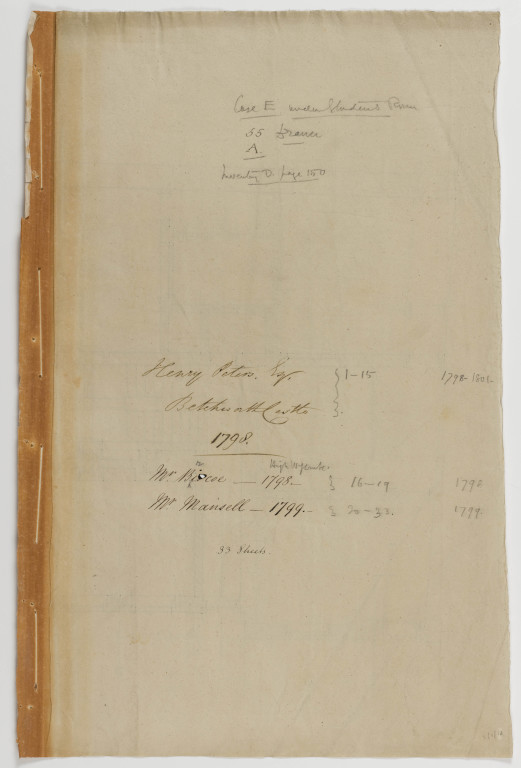 Case E under Students Room
55 Drawer
A.
Inventory D. page 150
Henry Peters. Esqr. } 1-15 1798-1801-
Betchworth Castle }.
1798.
High Wycombe.
Mr — 1798- } 16-19 1798
Mr Mansell - 1799.- } 20-33. 1799
33 Sheets.